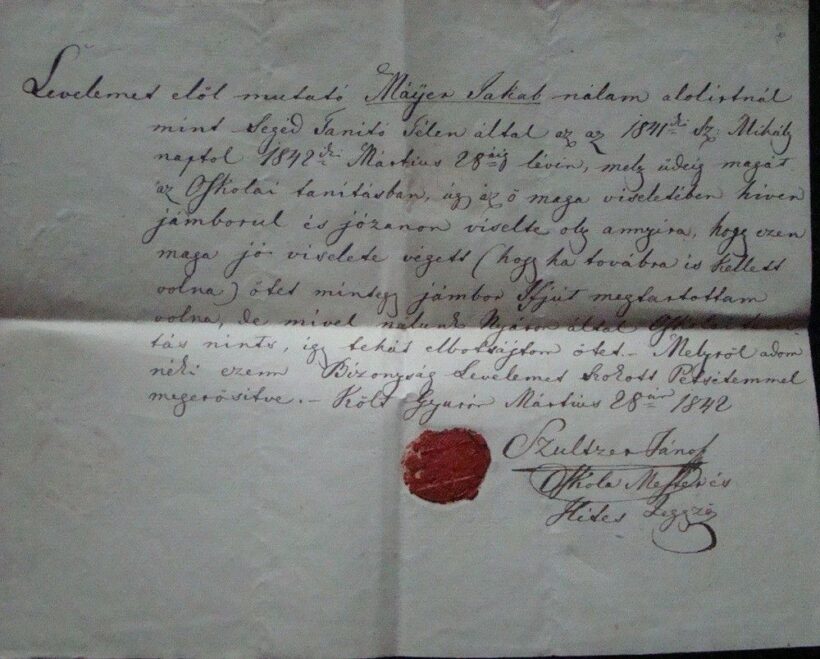 Levelemet előt mutató Máÿer Jakab nálam alolirtnál
mint Segéd Tanitó Télen által az az 1841dki Sz: Mihály
naptol 1842dki Mártius 28áig lévén, mely üdeig magát
az Oskolai tanitásban, úgy az ő maga viseletében hiven
jámborul és józanon viselte oly annyira, hogy ezen
maga jó viselete végett (hogy ha továbra is Kellett
volna) ötet mintegy jámbor Ifjút megtartottam
volna, de mivel nálunk Nyáron által Oskolai
tás nints, így tehát elbotsájtom ötet.- Melyről adom
néki ezenn Bizonyság Levelemet szokott Petsétemmel
megerősitve.- Költ Gyarón Mártius 28án 1842
Szultzer János
Oskola Mester és
Hites Jegyző